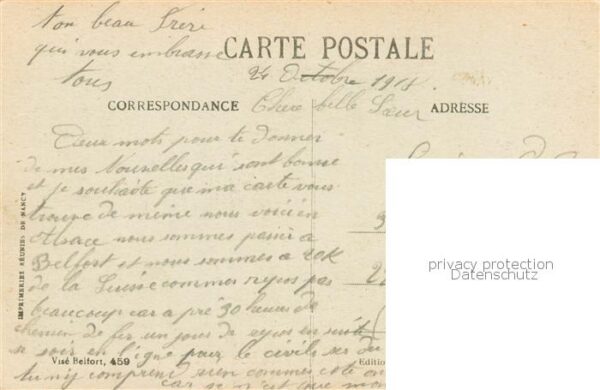 ton beau Frère
qui vous embrasse
tous
CARTE POSTALE
24 Octobre 1918
CORRESPONDANCE
ADRESSE
Chere belle Sœur
Deux mots pour te donner
de mes Nouvelles qui sont bonne
et je souhaite que ma carte vous
trouve de même nous voici en
Alsace nous sommes passer a
Belfort et nous sommes a 20K
de la Suisse comme repos pas
beaucoup car a pré 30 heures de
chemin de fer un jours de repos en suite
ce soir en ligne pour le civil ses du
tu ny comprend rien comme
car se n'est que
IMPRIMERIES RÉUNIES DE NANCY
Visé Belfort, 459
Edition
privacy protection
Datenschutz